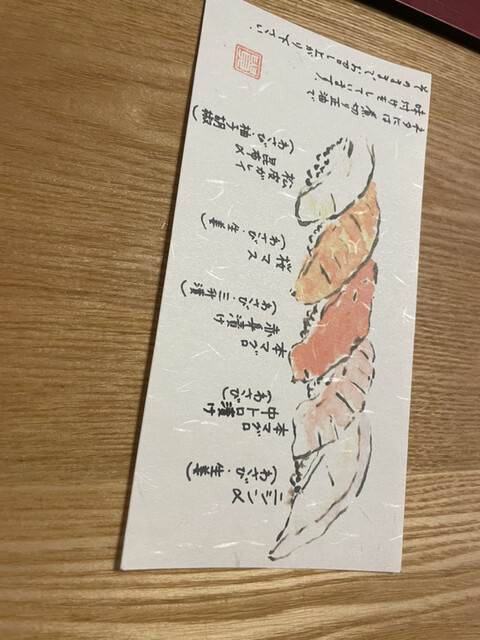 ニシン〆
(わさび・生姜)
本マグロ
中トロ漬け
(わさび)
本マグロ
赤身漬け
(わさび・三升漬)
桜マス
(わさび・生姜)
松皮ガレイ
昆布〆
(わさび・柚子胡椒)
ネタには煮切り正油で
味付けをしています
そのままでお召し上がり下さい